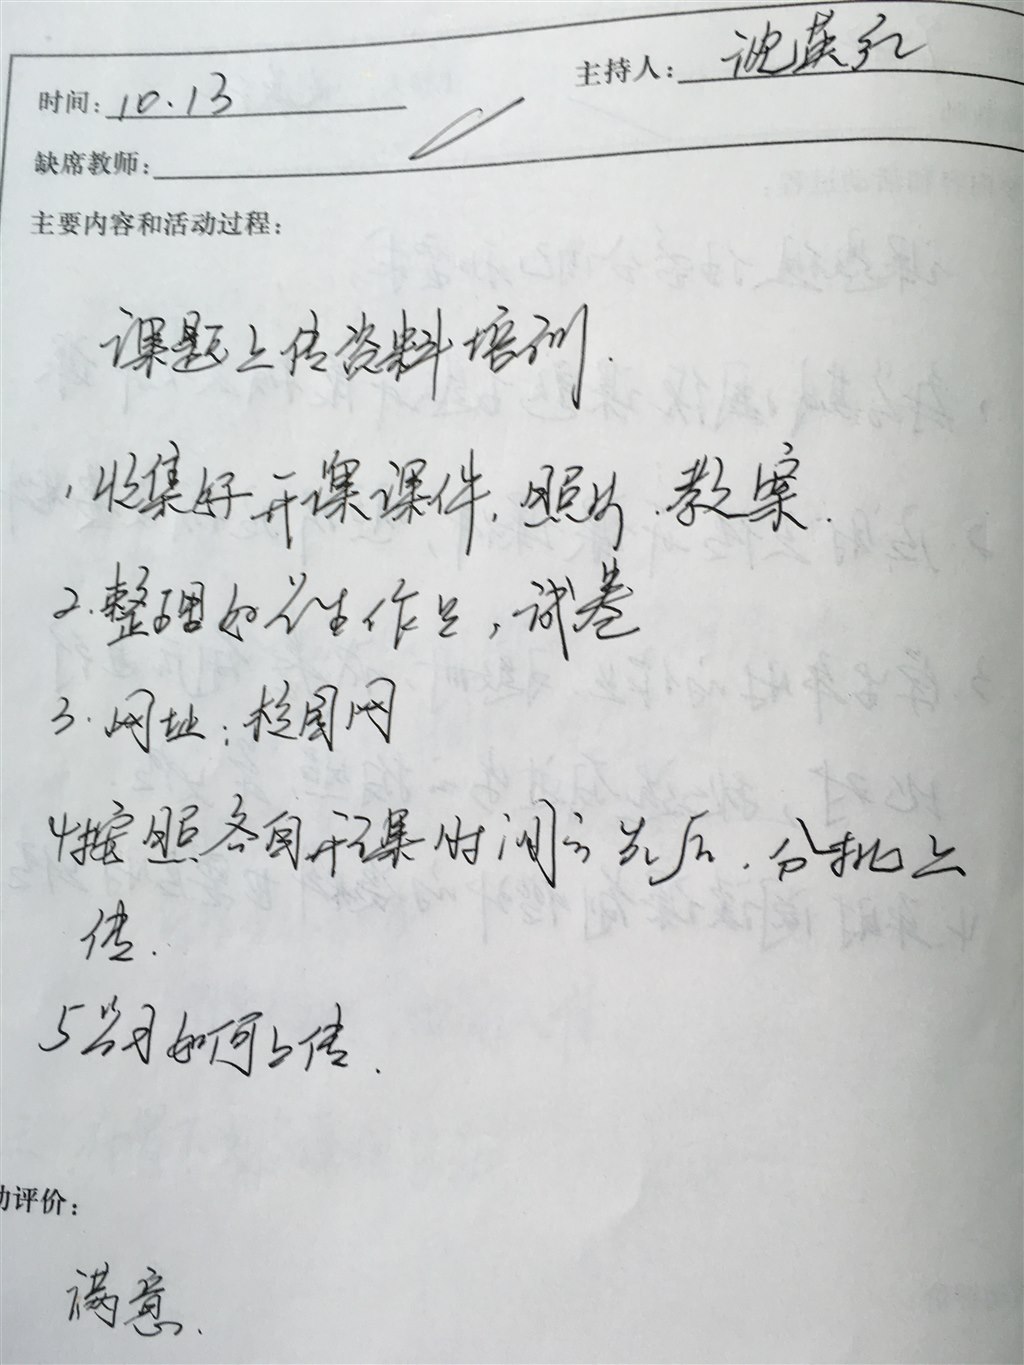 主持人：沈燕红
时间：10.13
缺席教师：
主要内容和活动过程：
课题上传资料培训.
1.收集好开课课件、照片、教案.
2.整理好学生作品，试卷
3.网址：校园网
4按照各自开课时间之先后、分批上
传.
5学习如何上传.
动评价：
满意.